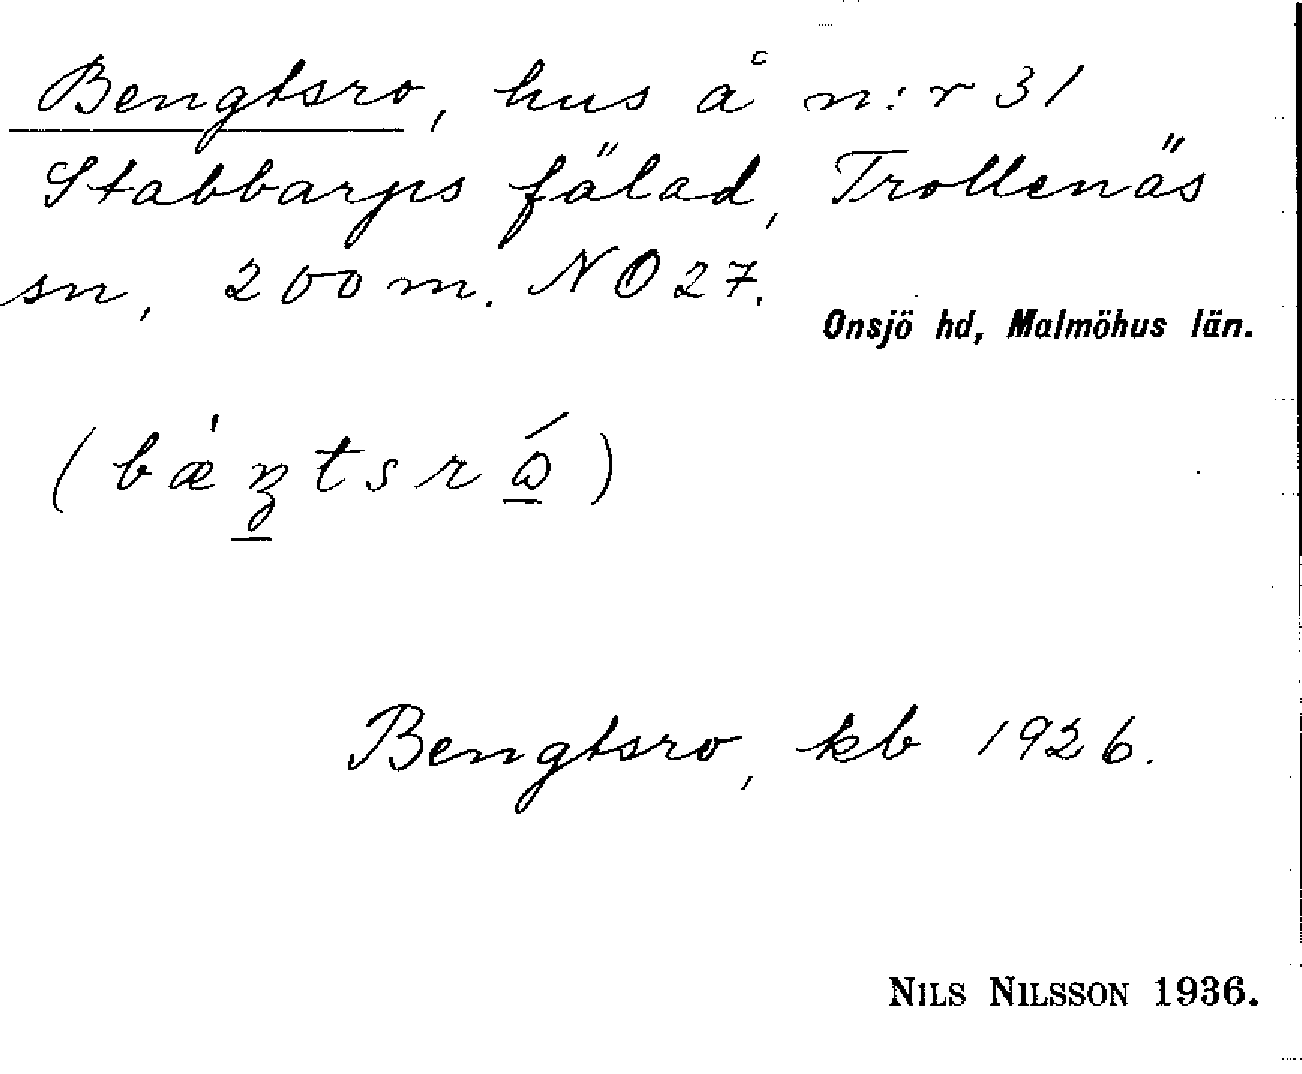 Bengtsro, hus å n:r 31
Stabbarps fälad, Trollenäs
sn, 200 m. NO 27.
Onsjö hd, Malmöhus län.
Bengtsro, kb 1926.
NILS NILSSON 1936.